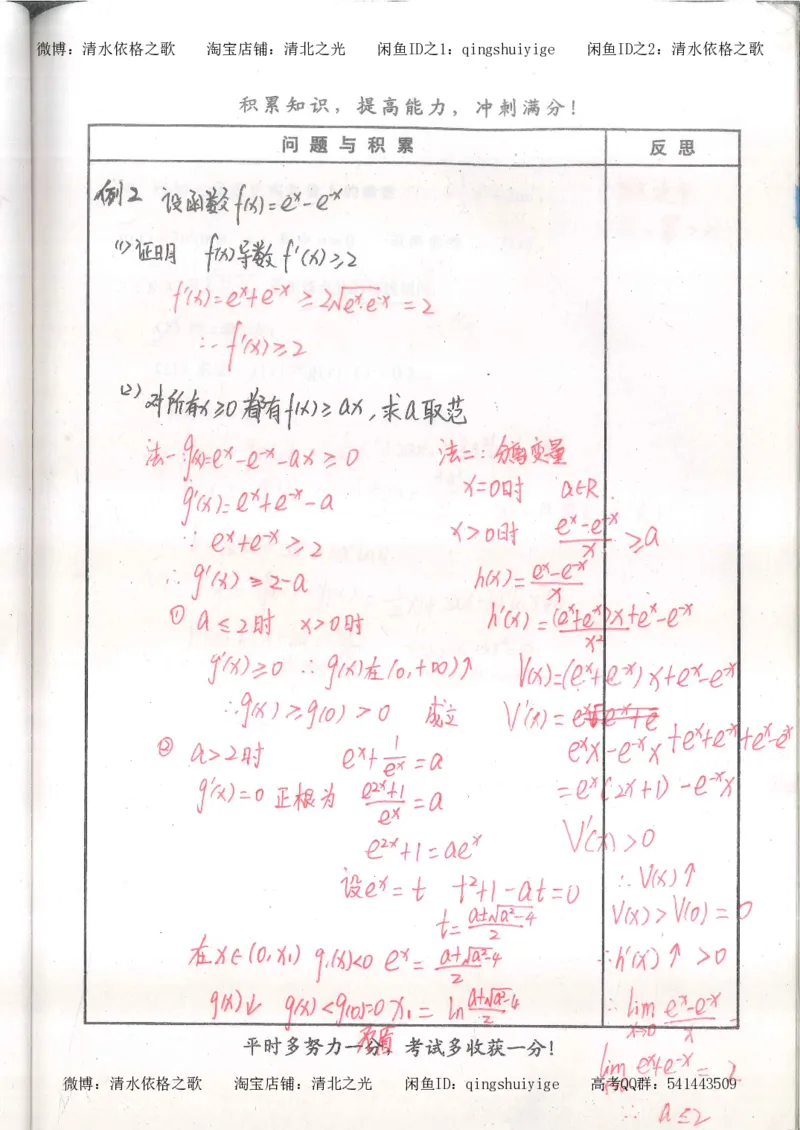 微博：清水依格之歌 淘宝店铺：清北之光 闲鱼ID之1：qingshuiyige 闲鱼ID之2：清水依格之歌
积累知识，提高能力，冲刺满分！
问题与积累 反思
例2 设函数f(x)=eˣ-e⁻ˣ
(1)证明 f(x)导数f'(x)≥2
f'(x)=eˣ+e⁻ˣ≥2√(eˣ·e⁻ˣ)=2
∴f'(x)≥2
(2)对所有x≥0都有f(x)≥ax,求a取范
法一:g(x)=eˣ-e⁻ˣ-ax≥0
g'(x)=eˣ+e⁻ˣ-a
∵eˣ+e⁻ˣ≥2
∴g'(x)≥2-a
①a≤2时 x>0时
g'(x)≥0 ∴g(x)在(0,+∞)↑
∴g(x)≥g(0)>0 成立
②a>2时 eˣ+1/eˣ=a
g'(x)=0正根为 (e²ˣ+1)/eˣ=a
e²ˣ+1=aeˣ
设eˣ=t t²+1-at=0
t=(a±√(a²-4))/2
在x∈(0,x₁) g'(x)<0 eˣ=(a+√(a²-4))/2
g(x)↓ g(x)<g(0)=0 x₁=ln (a+√(a²-4))/2
矛盾
法二:分离变量
x=0时 a∈R.
x>0时 (eˣ-e⁻ˣ)/x≥a
h(x)=(eˣ-e⁻ˣ)/x
h'(x)=((eˣ+e⁻ˣ)x+eˣ-e⁻ˣ)/x²
V(x)=(eˣ+e⁻ˣ)x+eˣ-e⁻ˣ
V'(x)=
eˣx-e⁻ˣx+eˣ+e⁻ˣ+eˣ-e⁻ˣ
=eˣ(2x+1)-e⁻ˣx
V'(x)>0
∴V(x)↑
V(x)>V(0)=0
∴h'(x)↑>0
∴lim x→0 (eˣ-e⁻ˣ)/x =
lim eˣ+e⁻ˣ=2
∴a≤2
平时多努力一分！ 考试多收获一分！
微博：清水依格之歌 淘宝店铺：清北之光 闲鱼ID：qingshuiyige 高考QQ群：541443509